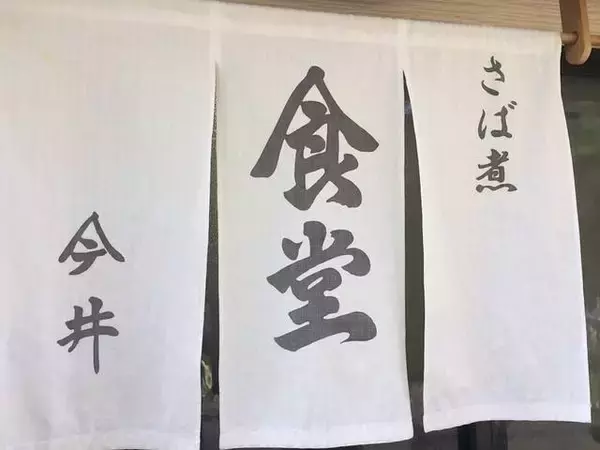 さば煮
食堂
今井